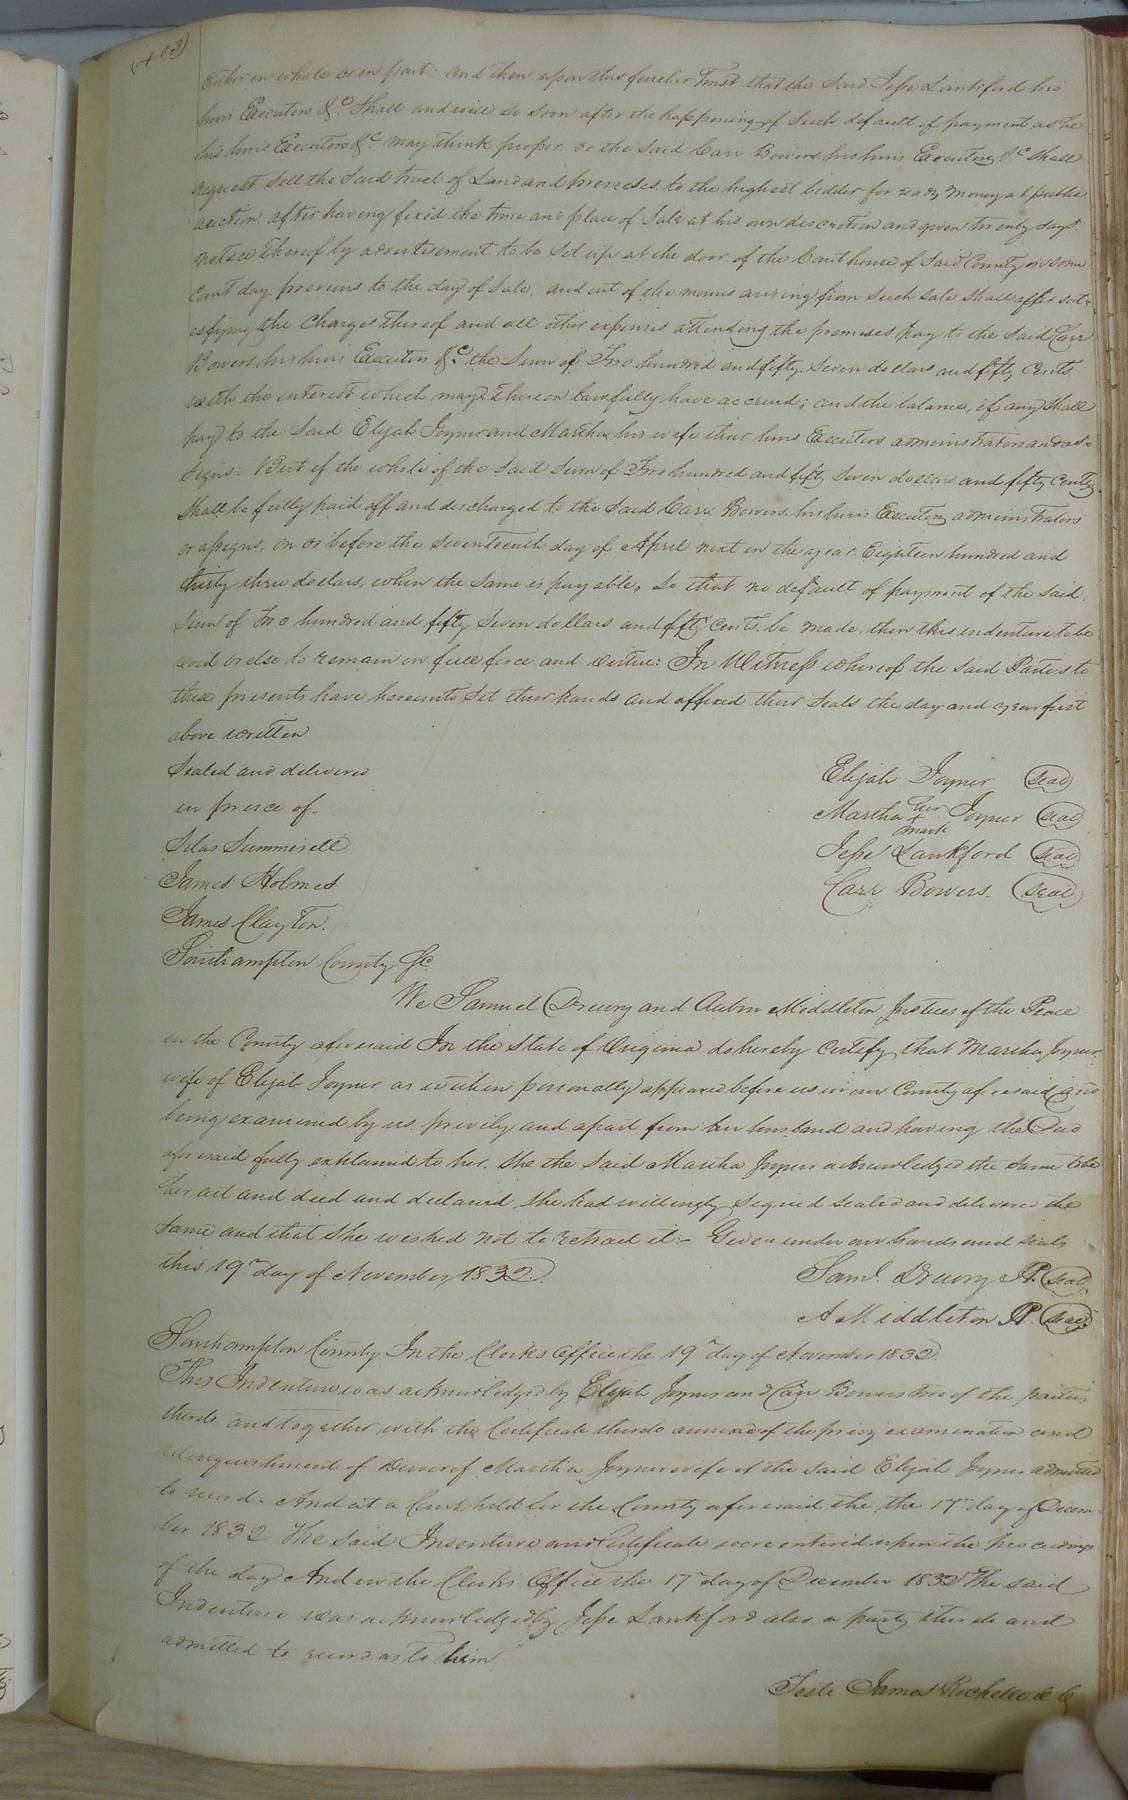 (403)
Either in whole or in part: and then upon this further Trust that the said Jesse Lankford his
heirs Executors &c. Shall and will so soon after the happening of such default of payment as he
his heirs Executors &c. may think proper. or the said Carr Bowers his heirs Executors &c shall
request. Sell the said tract of Land and premises to the highest bidder for ready money at public
auction after having fixed the time and place of sale at his own discretion and given twenty days.
notice thereof by advertisement to be set up at the door of the Courthouse of said County on some
Court day previous to the day of sale. and out of the monies arising from such sale shall after sat-
isfying the charges thereof and all other expenses attending the premises pay to the said Carr
Bowers his heirs Executors &c. the Sum of Two hundred and fifty seven dollars and fifty Cents
with the interest which may thereon lawfully have accrued; and the balance, if any shall
pay to the said Elijah Joyner and Martha his wife their heirs Executors administrators and as-
signs: But if the whole of the said sum of Two hundred and fifty seven dollars and fifty cents
shall be fully paid off and discharged to the said Carr Bowers his heirs Executors administrators
or assigns, on or before the seventeenth day of April next in the year Eighteen hundred and
thirty three dollars, when the same is payable, so that no default of payment of the said
Sum of Two hundred and fifty seven dollars and fifty cents be made then this indenture to be
void or else to remain in full force and virtue: In Witness whereof the said Parties to
these presents have hereunto set their hands and affixed their seals the day and year first
above written
Sealed and delivered
in prence of.
Silas Summerell
James Holmes
James Clayton.
Elijah Joyner (seal)
Martha her + mark Joyner (seal)
Jesse Lankford (seal)
Carr Bowers. (seal)
Southampton County Sc
We Samuel Drewry and Aubin Middleton Justices of the Peace
in the County aforesaid In the State of Virginia do hereby certify that Martha Joyner
wife of Elijah Joyner as within personally appeared before us in our County aforesaid and
being examined by us privily and apart from her husband and having the Deed
aforesaid fully explained to her. She the said Martha Joyner acknowledged the same to be
her act and deed and declared she had willingly signed sealed and delivered the
same and that she wished not to retract it:- Given under our hands and seals
this 19th day of November 1832.
Saml. Drewry JP. (seal)
A Middleton JP (seal)
Southampton County In the Clerk's Office the 19th day of November 1832.
This Indenture was acknowledged by Elijah Joyner and Carr Bowers two of the parties
thereto and together with the Certificate thereto annexed of the privy examination and
relinquishment of Dower of Martha Joyner wife of the said Elijah Joyner admitted
to record. And at a Court held for the County aforesaid the the 17th day of Decem-
ber 1832 The said Indenture and Certificate were entered upon the proceedings
of the day And in the Clerk's Office the 17th day of December 1832 The said
Indenture was acknowledged by Jesse Lankford also a party thereto and
admitted to record as to him
Teste James Rochelle C C